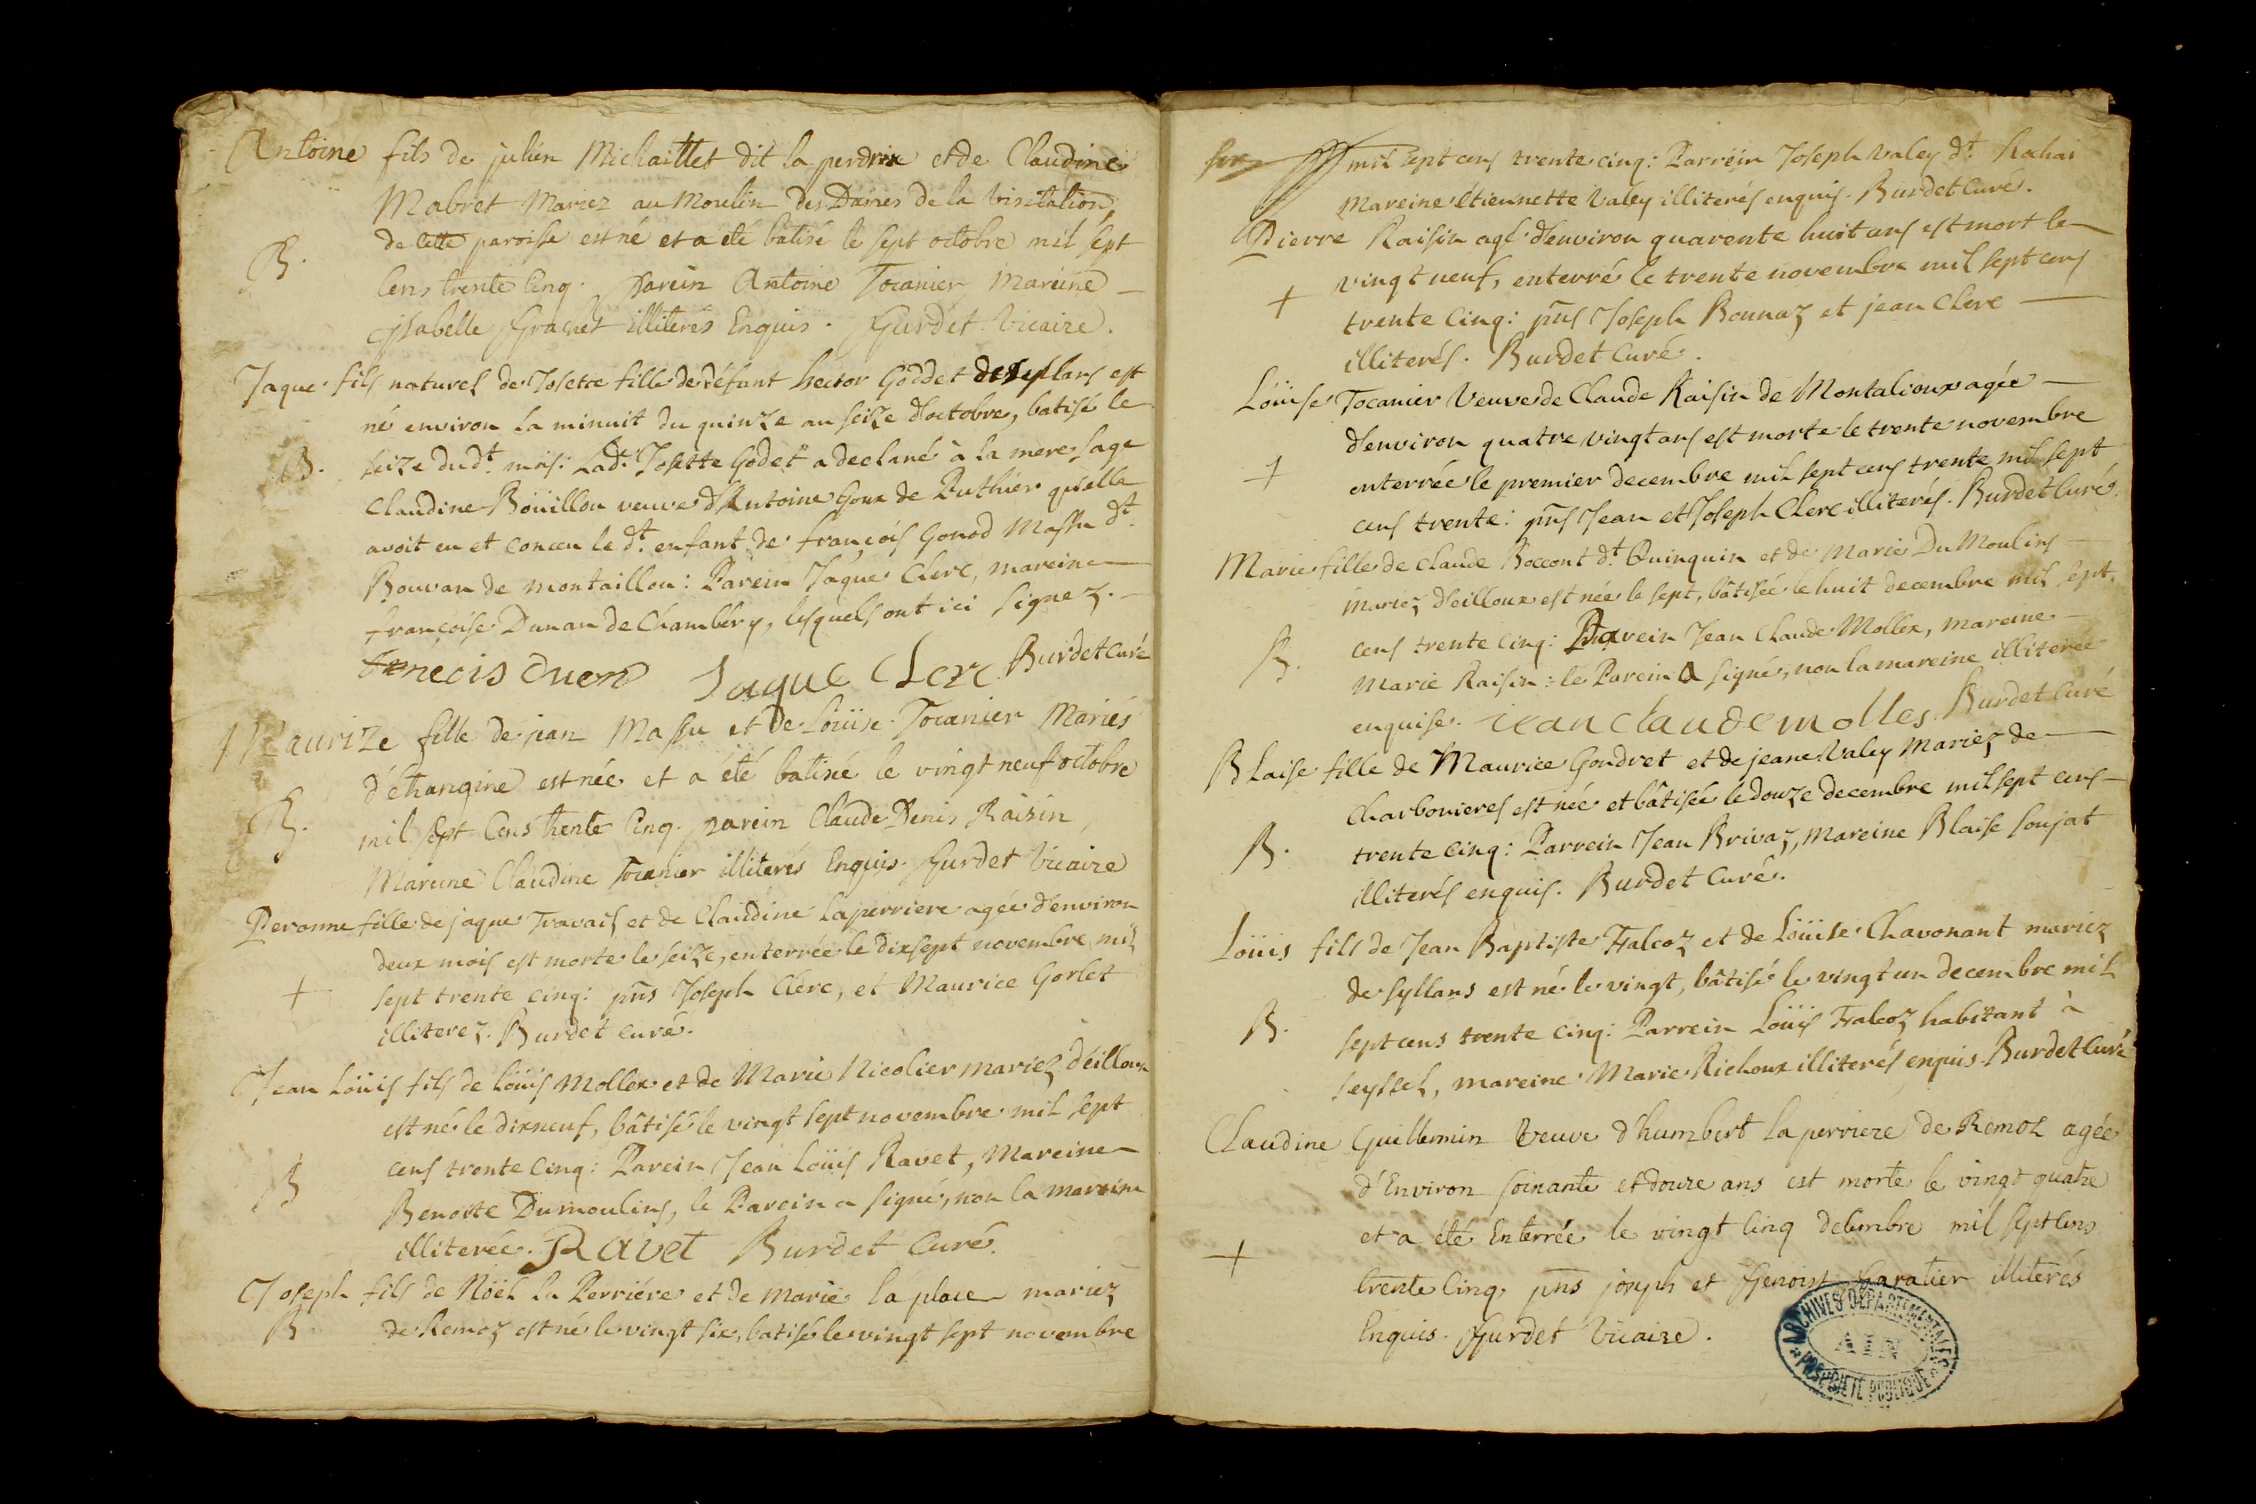 Antoine fils de julien Michaillet dit la perdrix et de Claudine
Mabret Mariez au Moulin des Dames de la Visitation
de cette paroisse est né et a été batisé le sept octobre mil sept
B.
Cens trente Cinq. Parein Antoine Tocanier Mareine
jsabelle Gravet illiterés Enquis. Gurdet Vicaire.
Jaque fils naturel de Josette fille de défunt hector Goddet de syllans est
né environ la minuit du quinze au seize d'octobre, batisé le
B. seize dudt. mois: Ladt. Josette Godet a declaré à la mere sage
Claudine Boüillon veuve d'Antoine Goux de Ruthier qu'elle
avoit eu et conceu le dt. enfant de françois Gonod Massu dt.
Bouvan de montaillou: Parein Jaque Clerc, mareine
françoise Dunan de Chambery, lesquels ont ici signez.
frnecis Duen Jaque Clerc Burdet curé
Maurize fille de jean Massu et de Loüise Tocanier Mariés
d'échangine est née et a été batisé le vingt neuf octobre
B. mil sept Cens trente Cinq. parein Claude Denis Raisin,
Mareine Claudine Tocanier illiterés Enquis. Gurdet Vicaire
Peronne fille de jaque Travail et de Claudine Laperriere agée d'environ
deux mois est morte le seize, enterrée le dixsept novembre mil
+ sept trente cinq: pñs Joseph Clerc, et Maurice Gorlet
illiterez. Burdet curé.
Jean Loüis fils de Loüis Mollex et de Marie Nicolier mariez d'éilloux
est né le dixneuf, bâtisé le vingt sept novembre mil sept
B cens trente cinq: Parein Jean Loüis Ravet, Mareine
Benoite Dumoulins, le Parein a signé, non la mareine
illiterée. Ravet Burdet Curé.
Joseph fils de Nöel la Perriére et de marie la place mariez
B de Remoz est né le vingt six, batisé le vingt sept novembre
mil sept cens trente cinq: Parrein Joseph Valey dt.
Mareine étiennette Valey illiterés enquis. Burdet Curé.
Pierre Raisin agé d'environ quarente huit ans est mort le
vingt neuf, enterré le trente novembre mil sept cens
+
trente cinq: pñs Joseph Bonnaz et jean Clerc
illiterés. Burdet Curé.
Loüise Tocanier Veuve de Claude Raisin de Montalioux agée
d'environ quatre vingt ans est morte le trente novembre
+ enterrée le premier decembre mil sept cens trente mil sept
cens trente: pñs Jean et Joseph Clerc illiterés. Burdet Curé.
Marie fille de Claude Boccont dt. Quinquin et de Marie Du Moulins
mariez d'eilloux est née le sept, bâtisée le huit decembre mil sept
B. cens trente cinq: Parein Jean Claude Mollex, mareine
Marie Raisin: le Parein a signé, non la mareine illiterée
enquise. iean claude molles Burdet Curé
Blaise fille de Maurice Gondret et de jeane Valey Mariez de
Charbonieres est née et bâtisée le douze decembre mil sept cens
B. trente cinq: Parrein Jean Brivaz, Mareine Blaise soujat
illiterés enquis. Burdet Curé.
Loüis fils de Jean Baptiste Falcoz et de Loüise Chavonant mariez
de syllans est né le vingt, bâtisé le vingt un decembre mil
B. sept cens trente cinq: Parrein Loüis Falcoz habitant à
seyssel, mareine Marie Richoux illiterés enquis. Burdet Curé
Claudine Guillemin Veuve d'humbert la perriere de Remoz agée
d'Environ soixante et douze ans est morte le vingt quatre
et a été Enterrée le vingt Cinq decembre mil sept Cens
+
trente Cinq. pñs joseph et Benoist Baratier illiterés
Enquis. Gurdet Vicaire.
ARCHIVES DÉPARTEMENTALES
AIN
PROPRIÉTÉ PUBLIQUE